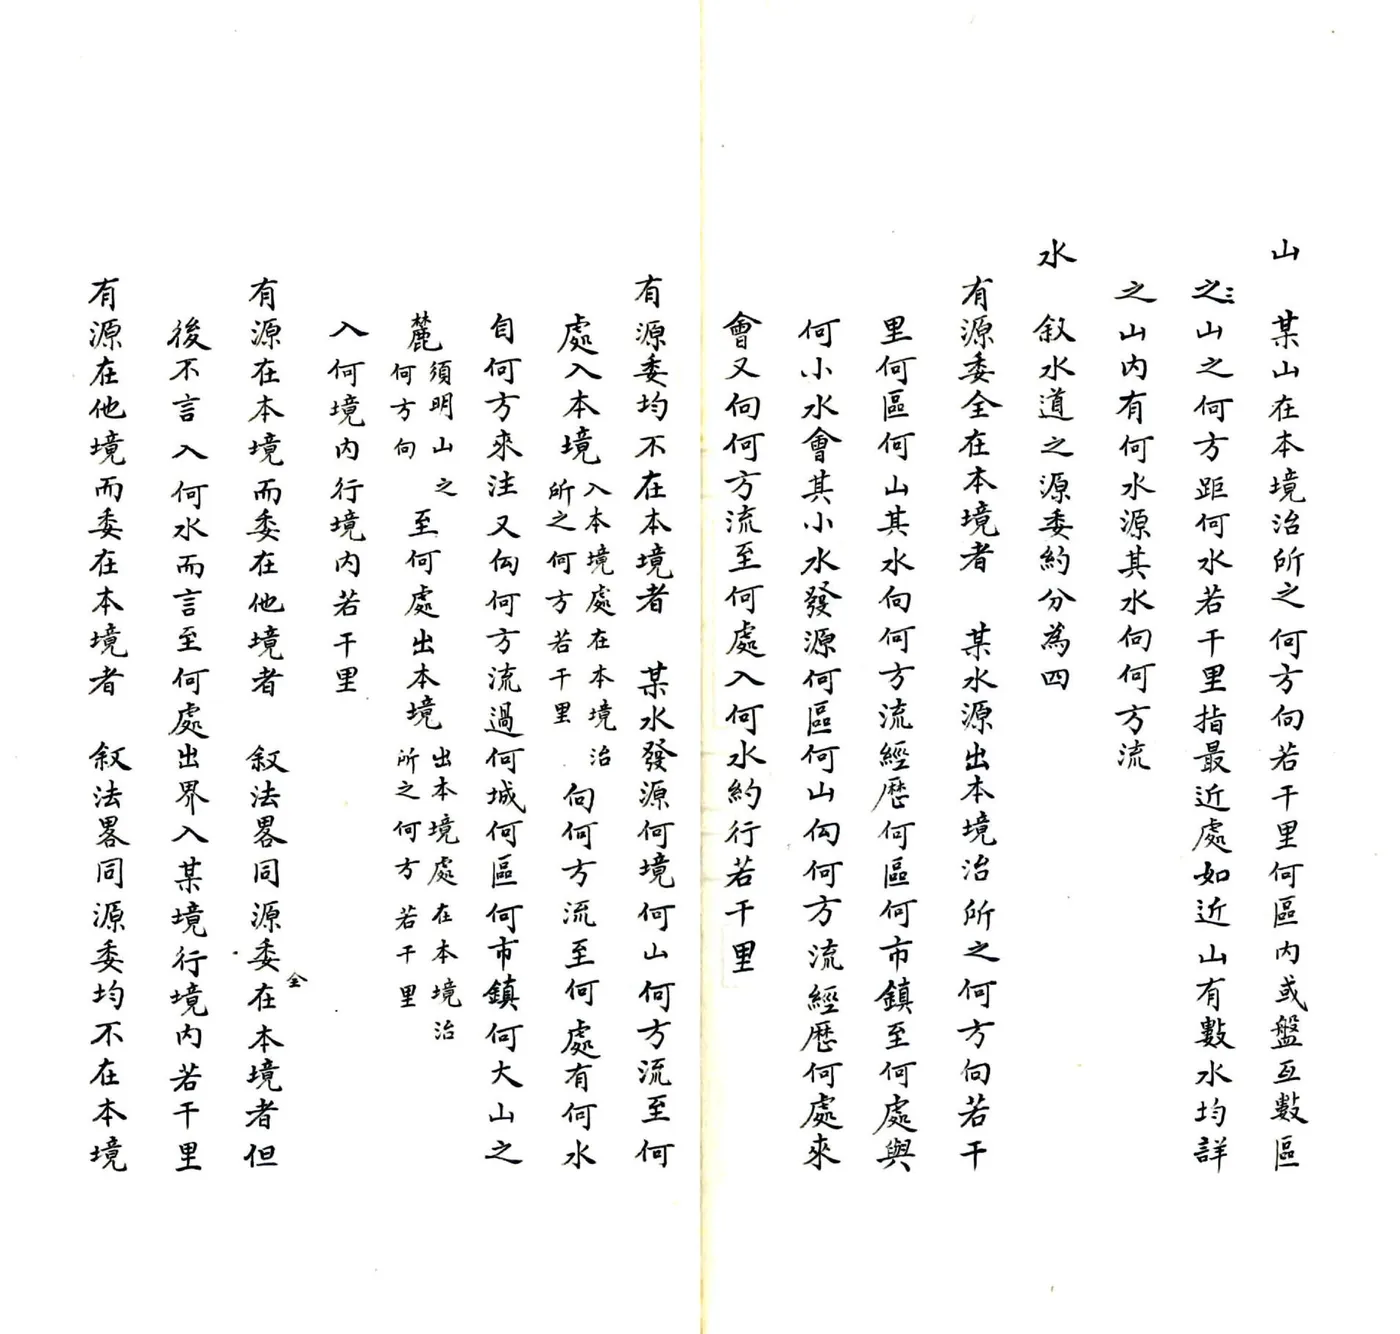 山　某山在本境治所之何方向若干里何區内或盤互數區
之山之何方距何水若干里指最近處如近山有數水均詳
之山内有何水源其水向何方流
水　叙水道之源委約分為四
有源委全在本境者　某水源出本境治所之何方向若干
里何區何山其水向何方流經歷何區何市鎮至何處與
何小水會其小水發源何區何山向何方流經歷何處來
會又向何方流至何處入何水約行若干里
有源委均不在本境者　某水發源何境何山何方流至何
處入本境入本境處在本境治所之何方若干里向何方流至何處有何水
自何方來注又向何方流過何城何區何市鎮何大山之
麓須明山之何方向至何處出本境出本境處在本境治所之何方若干里
入何境内行境内若干里
有源在本境而委在他境者　叙法畧同源委全在本境者但
後不言入何水而言至何處出界入某境行境内若干里
有源在他境而委在本境者　叙法畧同源委均不在本境